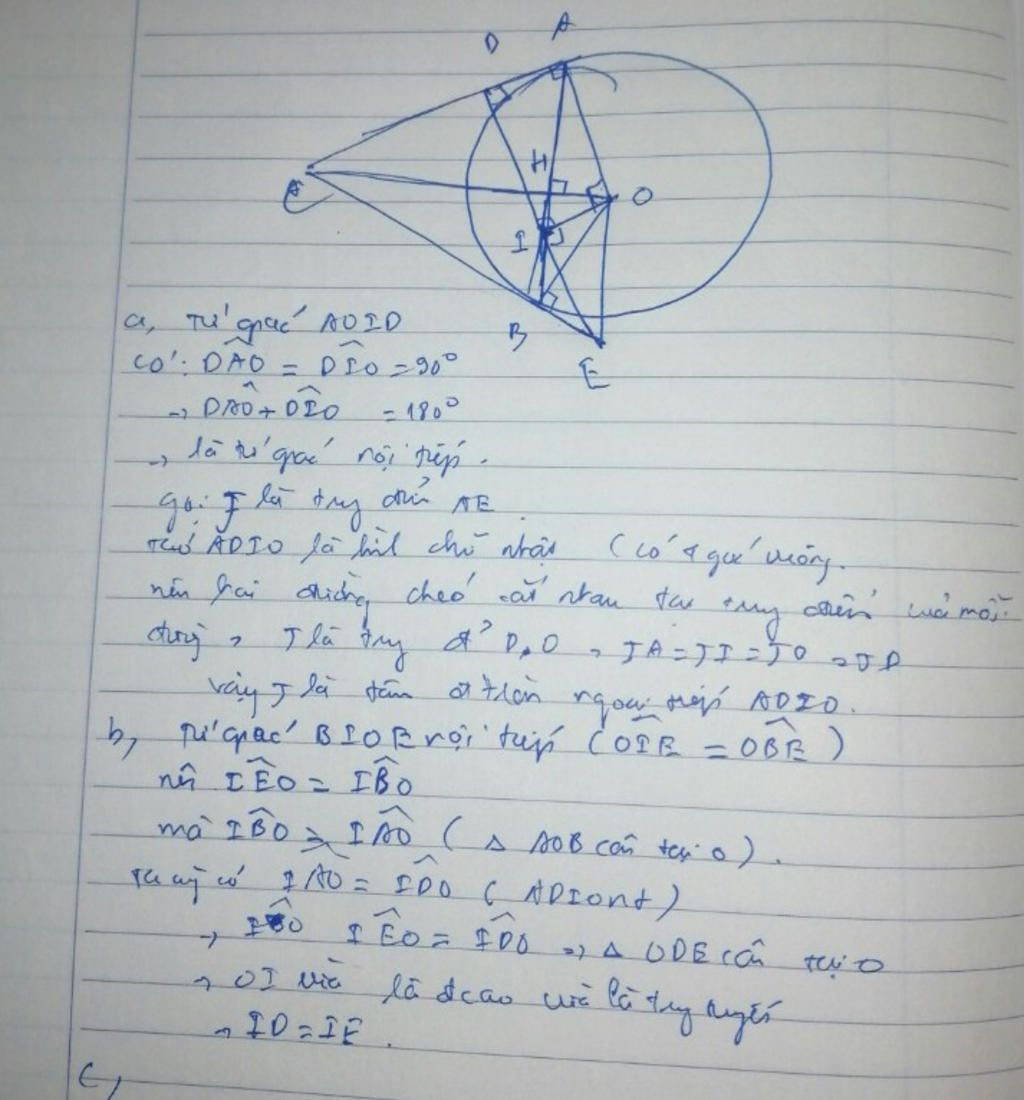 D A
H
O
I
B
E
a, Tứ giác AOID
có: DÂO = DÎO = 90°
→ DÂO + DÎO = 180°
→ là tứ giác nội tiếp.
gọi J là trg điểm AE
ADIO là hình chữ nhật (có 4 góc vuông.
nên hai đường chéo cắt nhau tại trung điểm của mỗi
đường, J là trg đ' D, O → JA = JI = JO = JD
vậy J là tâm đ tròn ngoại tiếp ADIO.
b, Tứ giác BIOE nội tiếp (OÎE = OB̂E)
nên IÊO = IB̂O
mà IB̂O = IÂO (Δ AOB cân tại O).
Ta cg có IÂO = ID̂O (ADIO nt)
→ IÊO = ID̂O => Δ ODE cân tại O
→ OI vừa là đcao vừa là trg tuyến
→ ID = IE.
c,